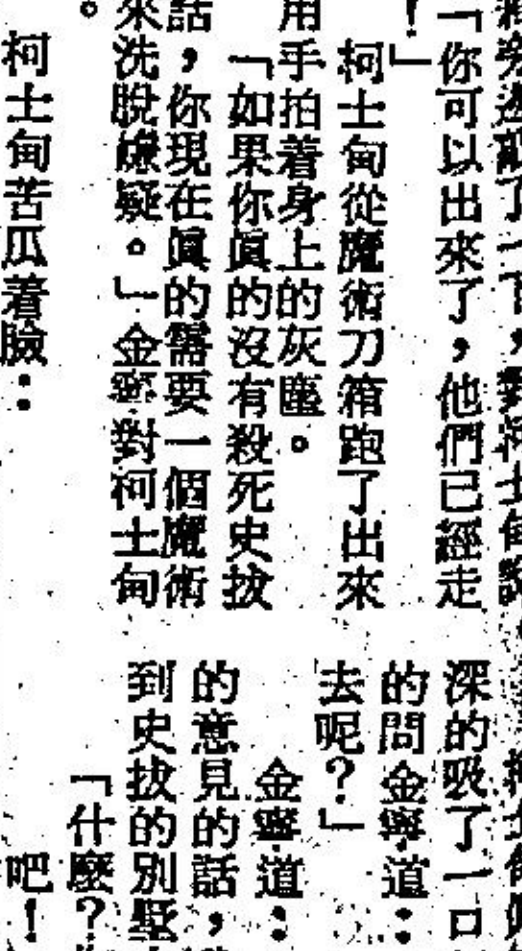 「你可以出來了，他們已經走
！」
柯士甸從魔術刀箱跑了出來
用手拍着身上的灰塵。
「如果你眞的沒有殺死史拔
話，你現在眞的需要一個魔術
來洗脫嫌疑。」金寧對柯士甸
。
柯士甸苦瓜着臉：
深的吸了一口
的問金寧道：
去呢？」
金寧道：
的意見的話，
到史拔的別墅
「什麼？
吧！